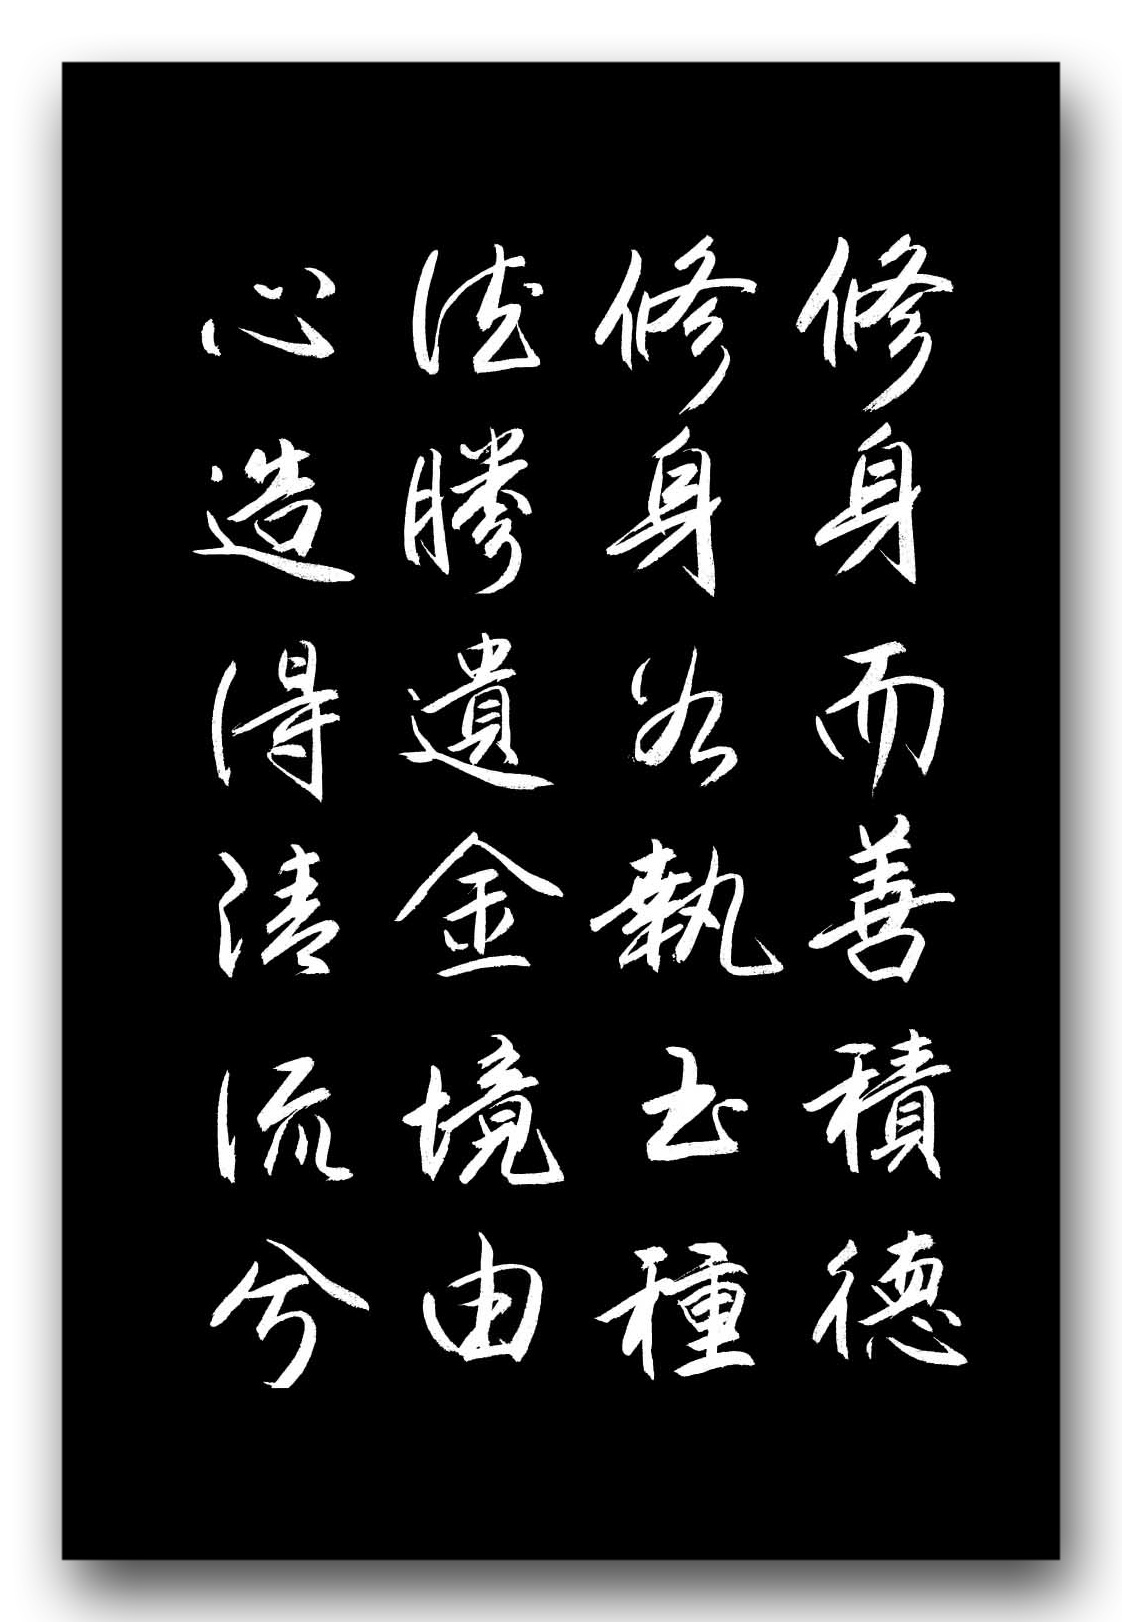 修身而善積德
修身如執玉種
德勝遺金境由
心造得清流兮